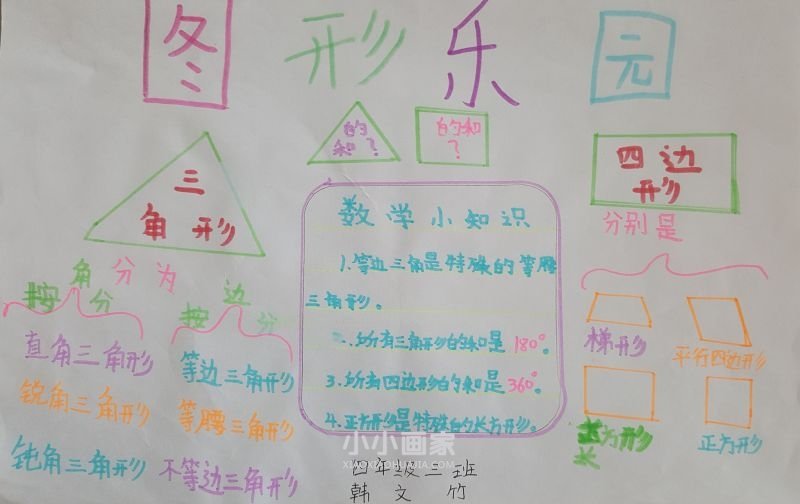 图形乐园
的
和？
的和
？
三
角形
四边
形
分别是
角分为
按分
边
按分
直角三角形
锐角三角形
钝角三角形
等边三角形
等腰三角形
不等边三角形
数学小知识
1.等边三角是特殊的等腰
三角形。
2.所有三角形的和是180°。
3.所有四边形的和是360°。
4.正方形是特殊的长方形。
梯形
平行四边形
方形
长
正方形
小小画家
XIAOXIAOHUAJIA.COM
四年级二班
韩文竹